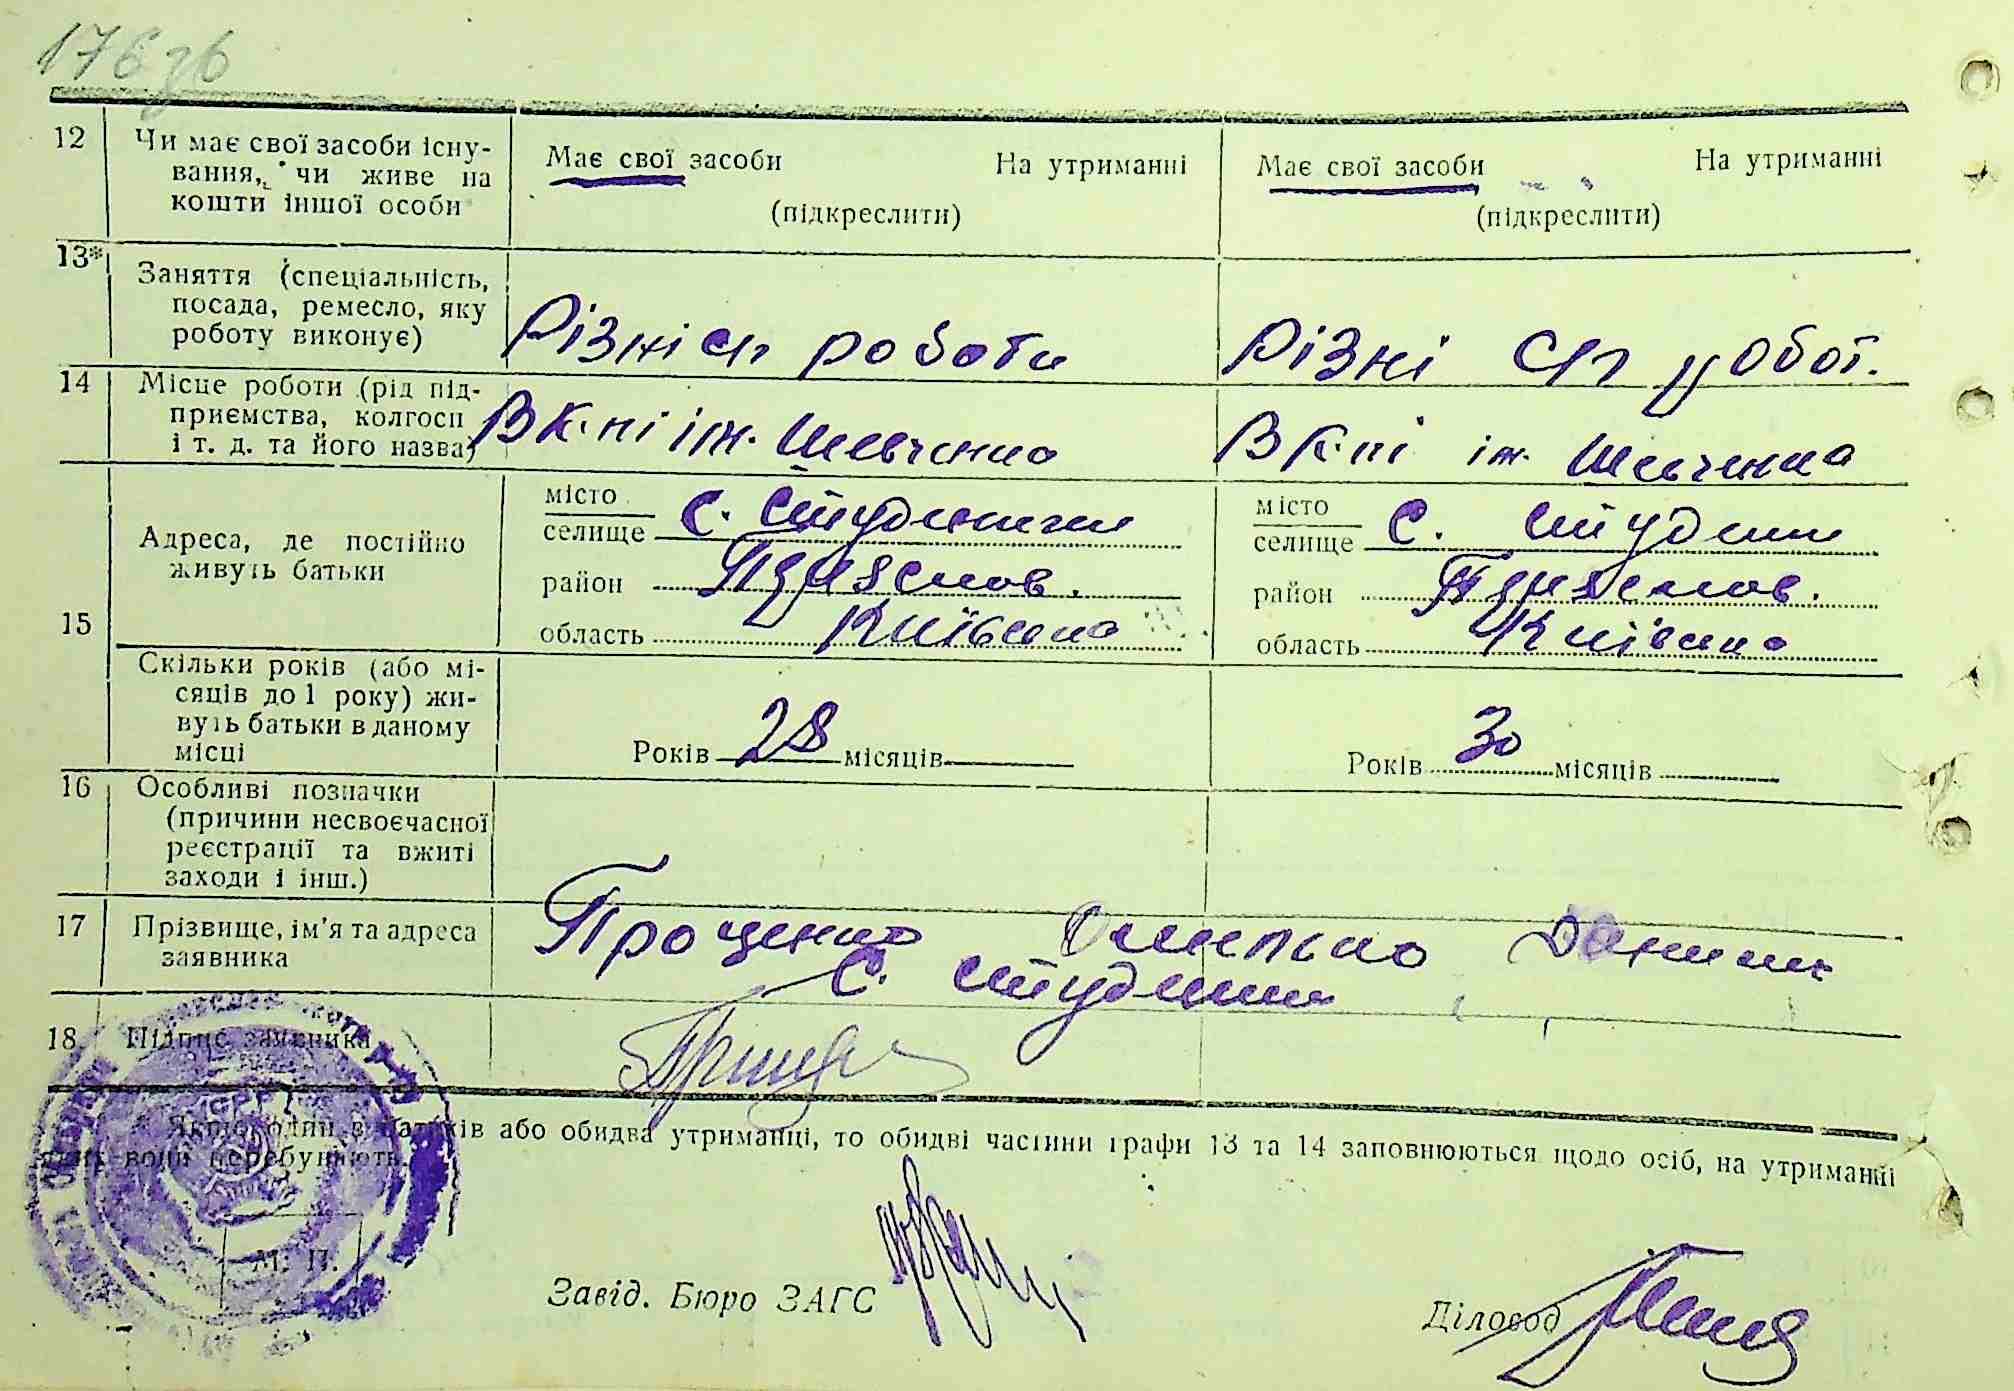 176 зв
12 Чи має свої засоби існу-
вання, чи живе на
кошти іншої особи
Має свої засоби На утриманні
(підкреслити)
Має свої засоби На утриманні
(підкреслити)
13* Заняття (спеціальність,
посада, ремесло, яку
роботу виконує)
Різні сп роботи
Різні сп робот.
14 Місце роботи (рід під-
приємства, колгосп
і т. д. та його назва)
В к-пі ім. Шевченка
В к-пі ім. Шевченка
15 Адреса, де постійно
живуть батьки
місто
селище с. Студиники
район Переяслов.
область Київська
місто
селище с. Студини
район Переяслов.
область Київська
Скільки років (або мі-
сяців до 1 року) жи-
вуть батьки в даному
місці
Років 28 місяців
Років 30 місяців
16 Особливі позначки
(причини несвоєчасної
реєстрації та вжиті
заходи і інш.)
17 Прізвище, ім'я та адреса
заявника
Проценко Омелько
с. Студини
18. Підпис заявника
* Якщо один з батьків або обидва утриманці, то обидві частини графи 13 та 14 заповнюються щодо осіб, на утриманні
яких вони перебувають.
УСРР
М. П.
Завід. Бюро ЗАГС
Діловод